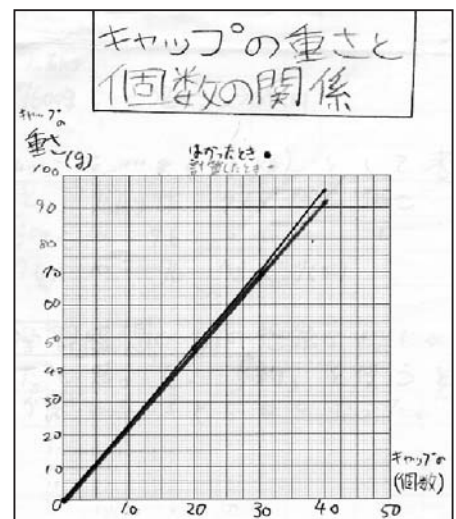 キャップの重さと
個数の関係
キャップの
重さ(g)
はかったとき •
計算したとき -
100
90
80
70
60
50
40
30
20
10
0
10 20 30 40 50
キャップの
(個数)